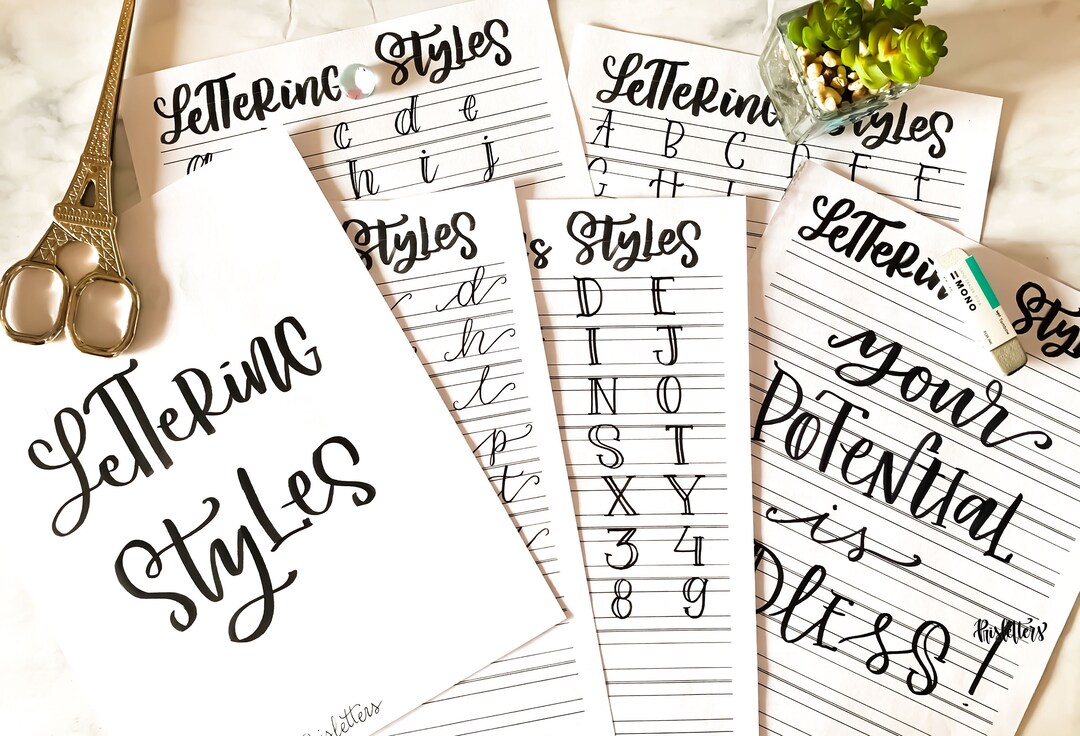 LeTTeRinG STyLeS
c d e
h i j
LeTTeRinG STyLeS
A B C D E F
G H I
LeTTeRinG
STyLeS
Prisletters
STyLeS
d
h
l
p
t
STyLeS
D E
I J
N O
S T
X Y
3 4
8 9
LeTTeRin
MONO
your
PoTeNTiaL
is
DLESS!
Prisletters